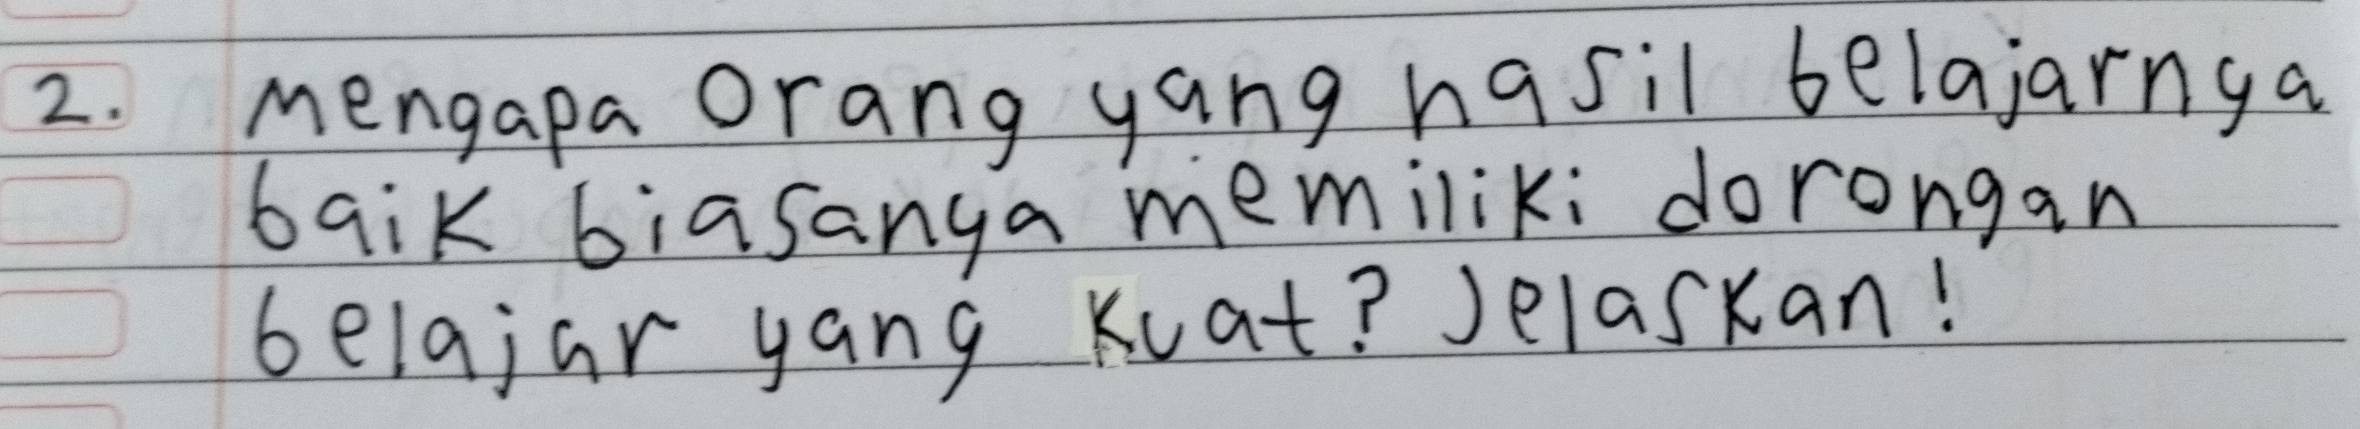 2. Mengapa Orang yang hasil belajarnya
baik biasanya memiliki dorongan
belajar yang kuat? Jelaskan!